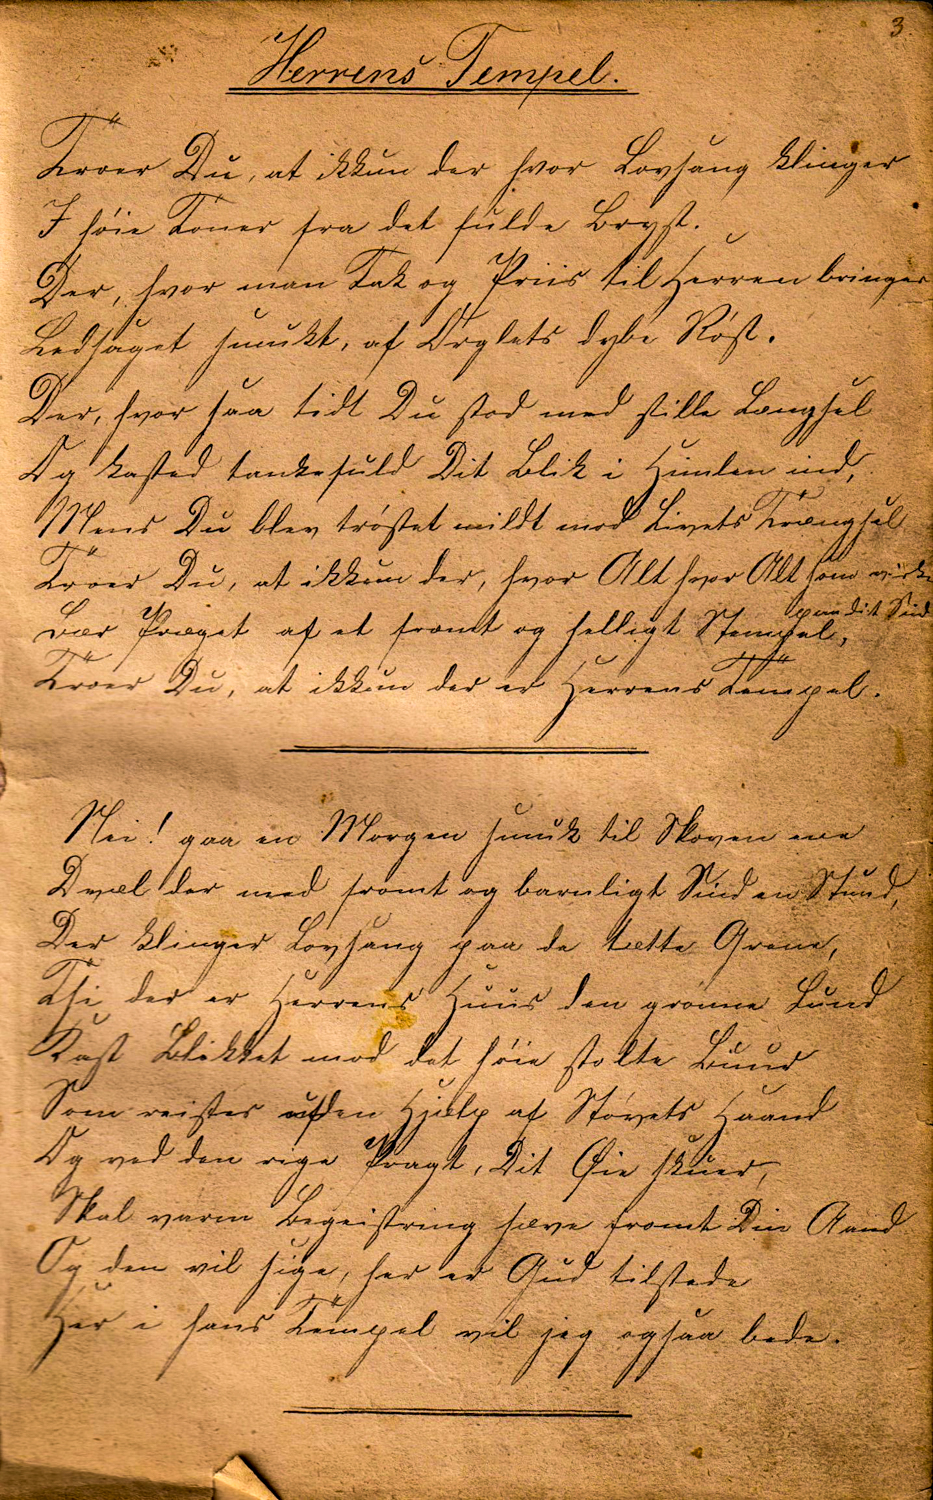 3.
Herrens Tempel.
Troer Du, at ikkun der hvor Lovsang klinger
I høie Toner fra det fulde Bryst.
Der, hvor man Tak og Priis til Herren bringer
Ledsaget smukt, af Orglets dybe Røst.
Der, hvor saa tidt Du stod med stille Længsel
Og kasted tankefuld Dit Blik i Himlen ind,
Mens Du blev trøstet mildt mod Livets Trængsel
Troer Du, at ikkun der, hvor Alt hvor Alt som virker
paa dit Sind
Bær Præget af et fromt og helligt Stempel,
Troer Du, at ikkun der er Herrens Tempel.
Nei! gaa en Morgen smuk til Skoven ene
Dvæl der med fromt og barnligt Sind en Stund,
Der klinger Lovsang paa de tætte Grene,
Thi der er Herrens Huus den grønne Lund
Kast Blikket mod det høie stolte Buur
Som reistes uden Hjælp af Støvets Haand
Og ved den rige Pragt, Dit Øie skuer,
Skal varm Begeistring hæve fromt Din Aand
Og den vil sige, her er Gud tilstede
Her i hans Tempel vil jeg ogsaa bede.